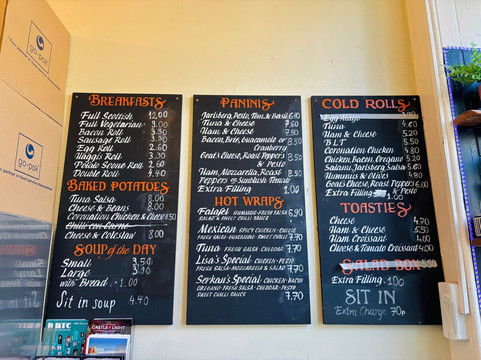 go-pak
go-pak
BREAKFASTS
Full Scottish 12.00
Full Vegetarian
Bacon Roll 3.30
Sausage Roll
Egg Roll 2.60
Haggis Roll 3.30
Potato Scone Roll 2.60
Double Roll 4.40
BAKED POTATOES
Tuna Salsa 8.00
Cheese & Beans 8.00
Coronation Chicken & Cheese 8.50
Chilli con Carne
Cheese & Coleslaw 8.00
SOUP of the DAY
Small 3.50
Large 3.90
with Bread + 1.00
Sit in soup 4.40
BTC
CASTLE OF LIGHT
PANINIS
Jarlsberg, Pesto, Tom, & Basil 6.90
Tuna & Cheese
Ham & Cheese 7.50
Bacon, Brie, Guacamole or 8.50
Cranberry
Goat's Cheese, Roast Peppers 8.50
& Pesto
Ham, Mozzarella, Roast
Peppers & Sunblush Tomato
Extra Filling 1.00
HOT WRAPS
Falafel HUMMUS-FRESH SALSA 6.90
SALAD & SWEET CHILLI SAUCE
Mexican SPICY CHICKEN-GUACY
7.70
Tuna FRESH SALSA CHEDDAR 7.70
Lisa's Special - CHICKEN
FRESH SALSA-MOZZARELLA & SALAD 7.70
Serkan's Special - CHICKEN-BACON
OREGANO FRESH SALSA-CHEDDAR-PESTO
SWEET CHILLI SAUCE 7.70
COLD ROLLS
Egg Mayo
Tuna 4.60
Ham & Cheese 5.20
BLT 5.50
Coronation Chicken 4.80
Chicken, Bacon, Oregano 5.20
Salami, Jarlsberg, Salsa 5.60
Hummus & Olives 4.80
Goats Cheese, Roast Peppers 6.00
Extra Filling
TOASTIES
Cheese 4.70
Ham & Cheese 5.50
Ham Croissant 4.00
Cheese & Tomato Croissant 4.00
SALAD BOX 5.50
Extra Filling 1.00
SIT IN
Extra Charge 70p